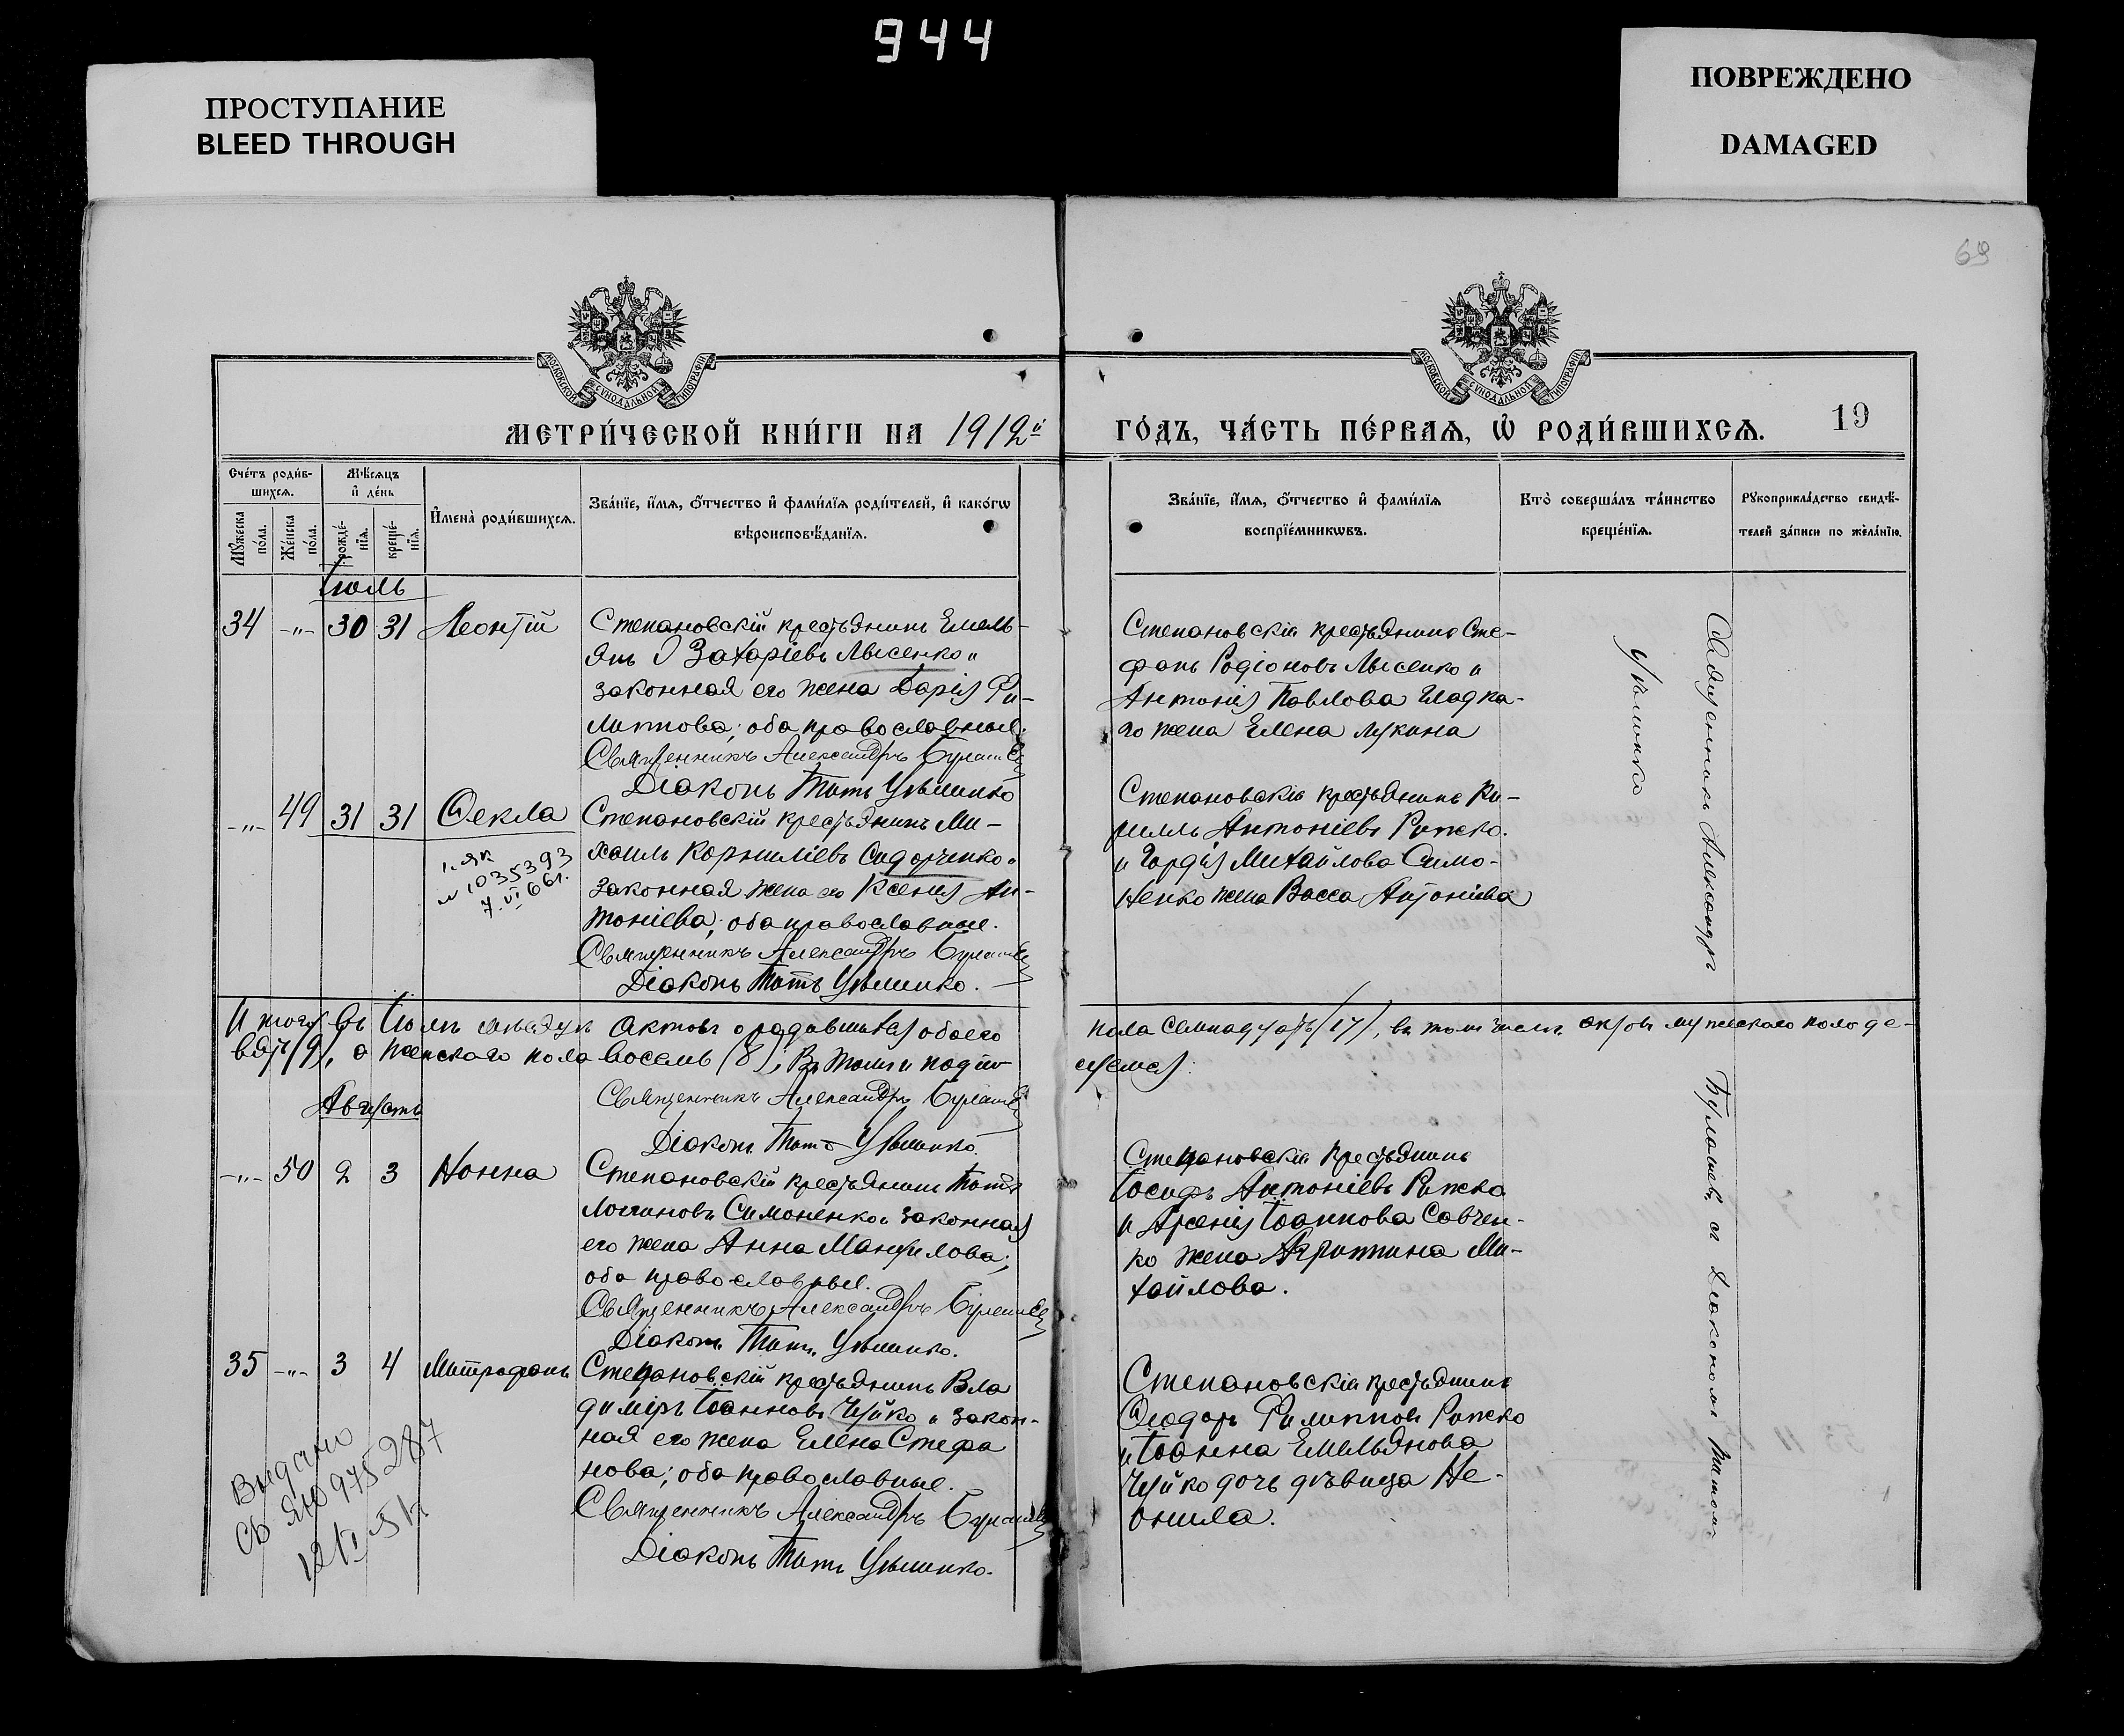 944
ПРОСТУПАНИЕ
BLEED THROUGH
ПОВРЕЖДЕНО
DAMAGED
69
МОСКОВСКОЙ СѴНОДАЛЬНОЙ ТИПОГРАФІИ
МОСКОВСКОЙ СѴНОДАЛЬНОЙ ТИПОГРАФІИ
МЕТРИ́ЧЕСКОЙ КНИ́ГИ НА 1912й
ГО́ДЪ, ЧА́СТЬ ПЕ́РВАЯ, Ѡ҆ РОДИ́ВШИХСЯ.
19
Сче́тъ роди́в-
шихся.
Мѣ́сяцъ
и҆ де́нь
Мꙋ́жеска
по́ла.
Же́нска
по́ла.
рожде́-
нїѧ.
креще́-
нїѧ.
И҆мена̀ роди́вшихся.
Зва́нїе, и҆́мя, ѻ҆́тчество и҆ фами́лїя роди́телей, и҆ како́гѡ
вѣроисповѣ́данїя.
Зва́нїе, и҆́мя, ѻ҆́тчество и҆ фами́лїя
воспрїе́мникѡвъ.
Кто̀ соверша́лъ та́инство
креще́нїя.
Рꙋкоприкла́дство свидѣ́-
телей за́писи по жела́нїю.
Іюль
34 -"- 30 31 Леонтій
Степановскій крестьянинъ Емель-
янъ Захаріевъ Лысенко и
законная его жена Дарія Фи-
липпова; оба православные.
Священникъ Александръ
Діаконъ Титъ
Степановскіи крестьянинъ Сте-
фанъ Родіоновъ Лысенко и
Антонія Павлова Гладка-
го жена Елена Лукина
-"- 49 31 31 Ѳекла
1035393
7.VI 66г.
Степановскій крестьянинъ Ми-
хаилъ Корниліевъ Сидорченко и
законная жена его Ксенія Ан-
тоніева; оба православные.
Священникъ Александръ
Діаконъ Титъ
Степановскіи крестьянинъ Ки-
риллъ Антоніевъ Рижко
и Гордія Михайлова Симо-
ненко жена Васса Антоніева
Итого въ Іюлѣ мѣсяцѣ актовъ о родившихся обоего пола семнадцать (17), въ томъ числѣ актовъ мужескаго пола де-
вять (9), а женскаго пола восемь (8), Въ томъ и подпи-
суемся
Священникъ Александръ
Діаконъ Титъ
Августъ
-"- 50 2 3 Нонна
Степановскій крестьянинъ Титъ
Логиновъ Симоненко и законная
его жена Анна Мануилова;
оба православные.
Священникъ Александръ
Діаконъ Титъ
Степановскіи крестьянинъ
Іосифъ Антоніевъ Рижко
и Арсенія Іоаннова Савчен-
ко жена Агриппина Ми-
хайлова.
35 -"- 3 4 Митрофанъ
Степановскій крестьянинъ Вла
диміръ Іоанновъ Чуйко и закон-
ная его жена Елена Стефа
нова; оба православные.
Священникъ Александръ
Діаконъ Титъ
Степановскіи крестьянинъ
Ѳеодоръ Филипповъ Рижко
и Іоанна Емельянова
Чуйко дочь дѣвица Не-
онила.
Выдано
975287
Священникъ Александръ
съ Діакономъ Титомъ